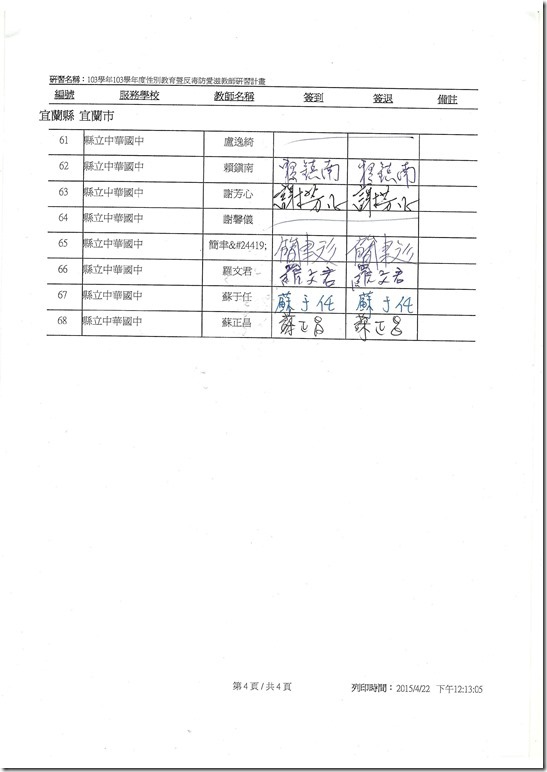 研習名稱：103學年103學年度性別教育暨反毒防愛滋教師研習計畫
編號 服務學校 教師名稱 簽到 簽退 備註
宜蘭縣 宜蘭市
61 縣立中華國中 盧逸綺
62 縣立中華國中 賴鎮南 賴鎮南 賴鎮南
63 縣立中華國中 謝芳心 謝芳心 謝芳心
64 縣立中華國中 謝馨儀
65 縣立中華國中 簡聿&#24419;
66 縣立中華國中 羅文君 羅文君 羅文君
67 縣立中華國中 蘇于任 蘇于任 蘇于任
68 縣立中華國中 蘇正昌 蘇正昌 蘇正昌
第 4 頁 / 共 4 頁 列印時間： 2015/4/22 下午12:13:05